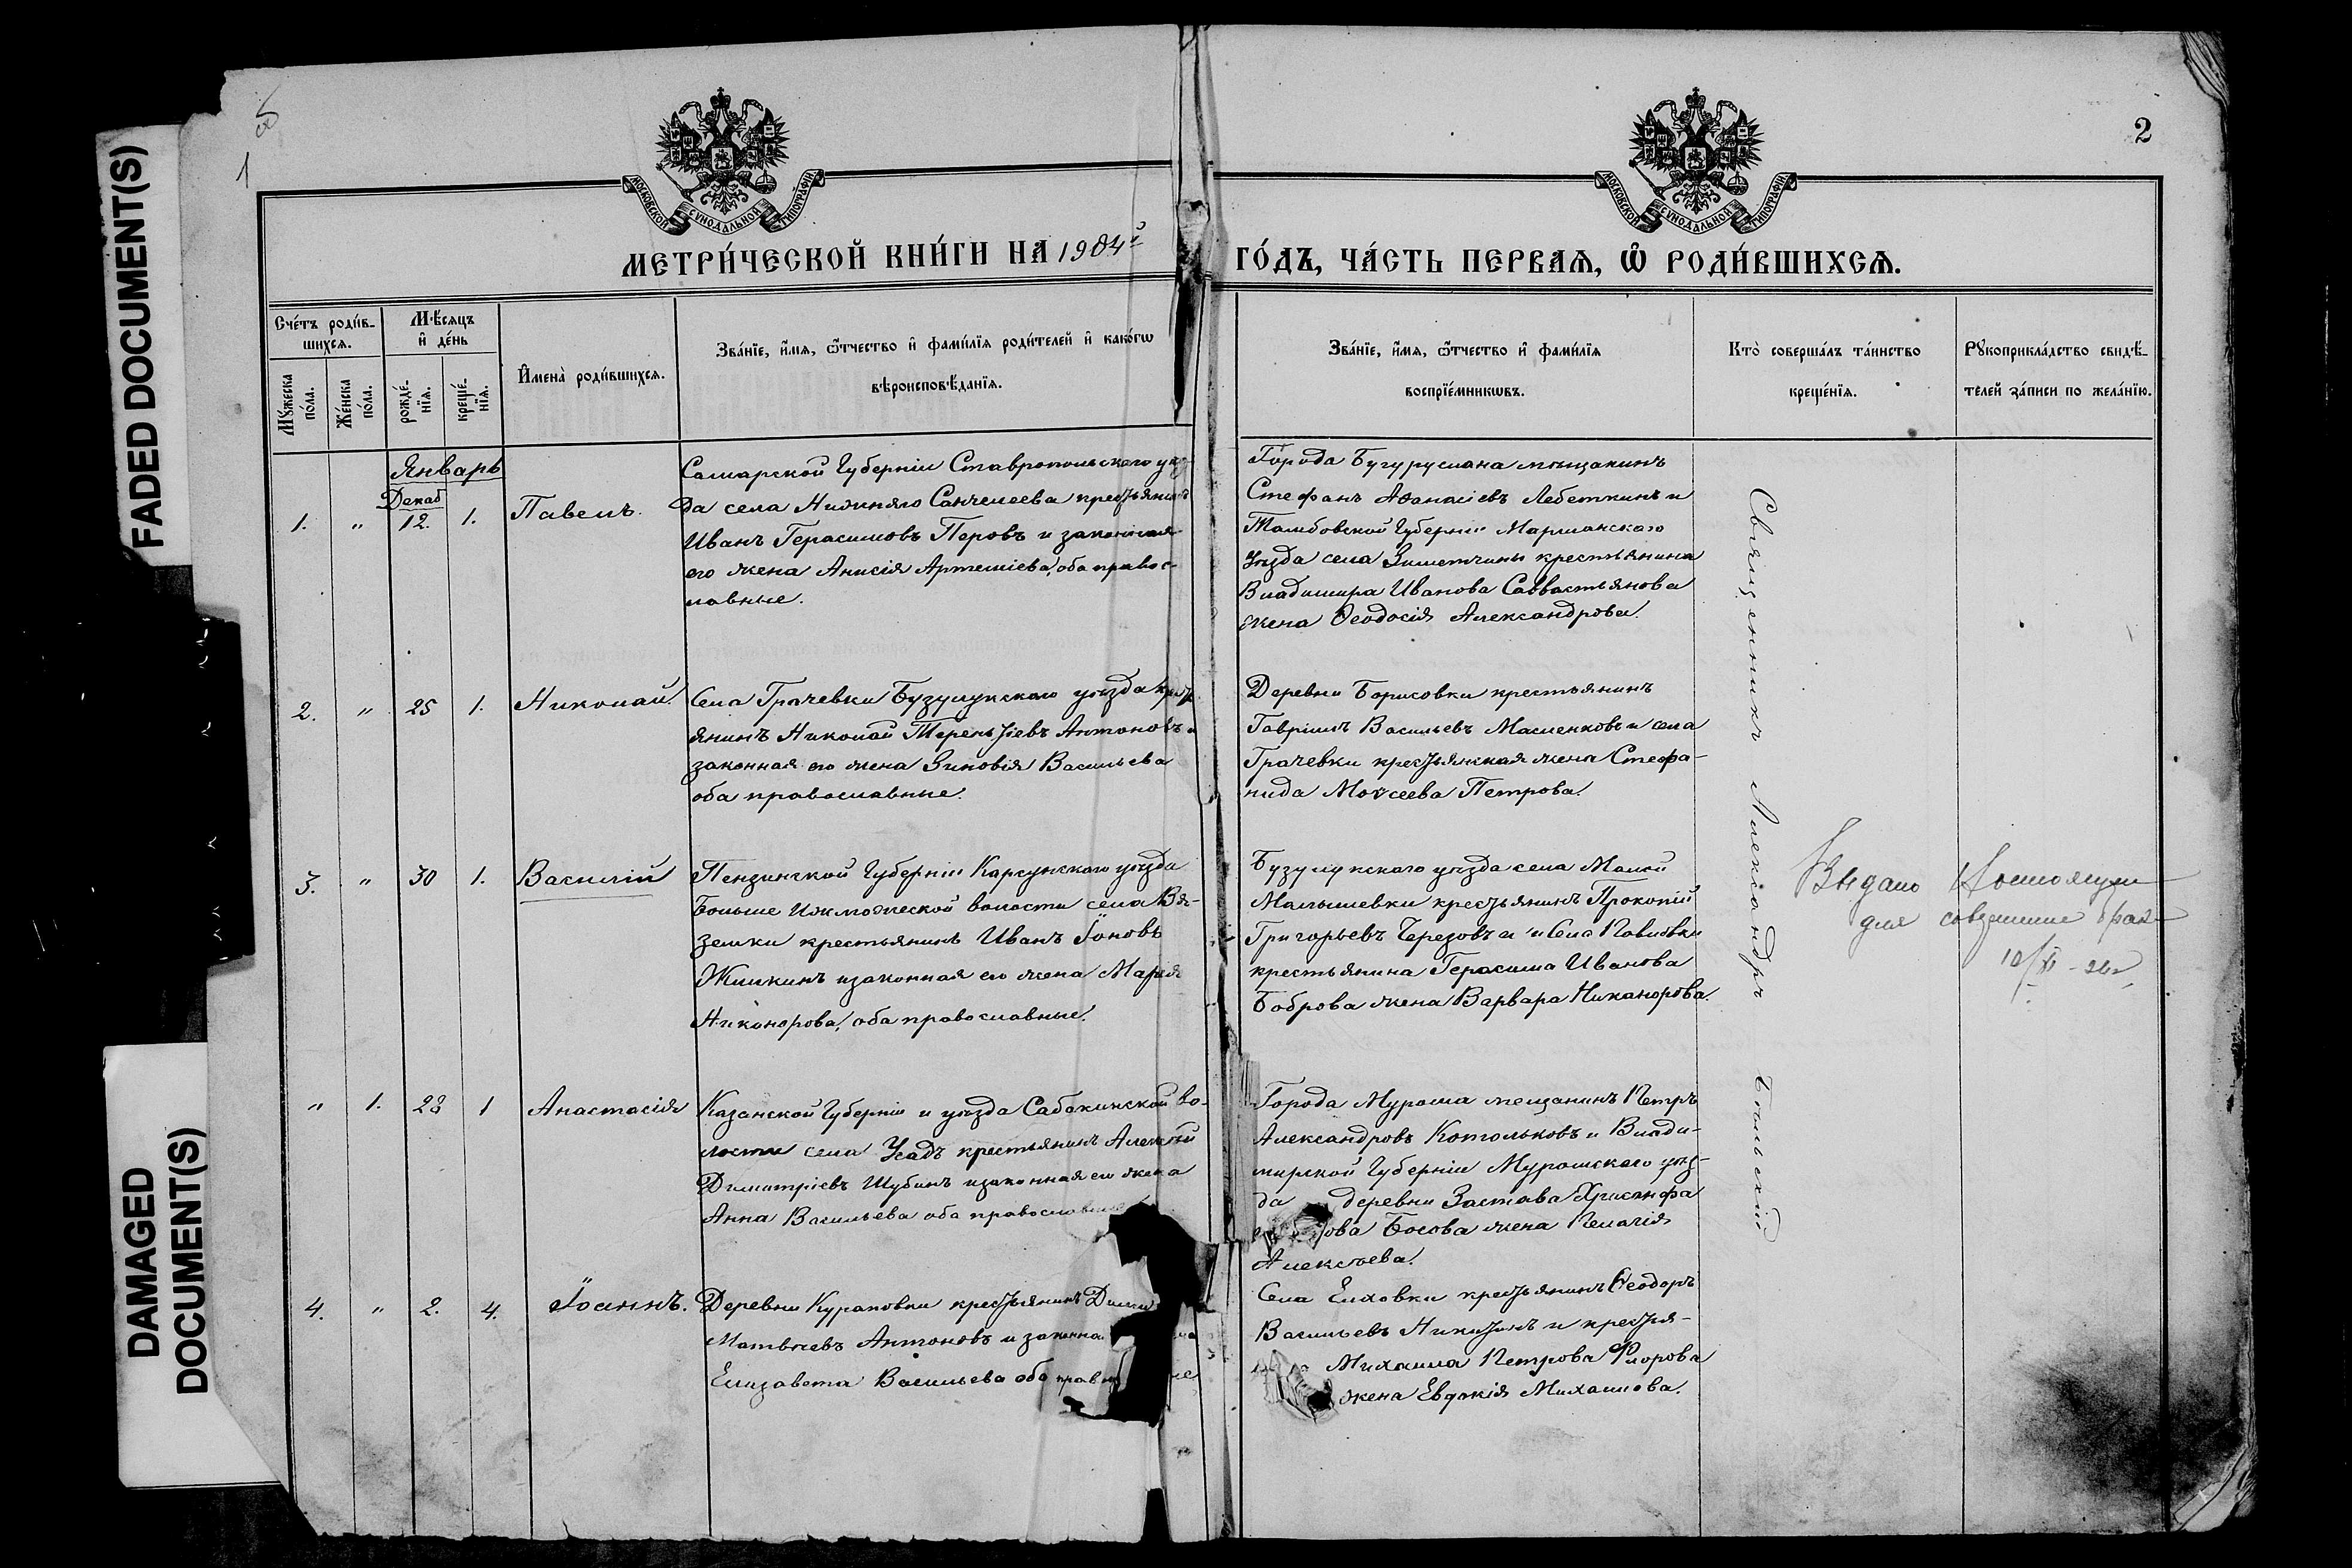 FADED DOCUMENT(S)
DAMAGED
DOCUMENT(S)
1
2
МОСКОВСКОЙ СѴНОДАЛЬНОЙ ТИПОГРАФІИ
МОСКОВСКОЙ СѴНОДАЛЬНОЙ ТИПОГРАФІИ
МЕТРИ́ЧЕСКОЙ КНИ́ГИ НА 1904й ГО́ДЪ, ЧА́СТЬ ПЕРВАѦ, Ѽ РОДИ́ВШИХСѦ.
Сче́тъ роди́в-
шихсѧ.
Мꙋ́жеска
по́ла.
Же́нска
по́ла.
Мѣ́сѧцъ
и҆ де́нь
рожде́-
нїѧ.
креще́-
нїѧ.
И҆мена̀ роди́вшихсѧ.
Зва́нїе, и҆́мѧ, ѻ҆́тчество и҆ фами́лїѧ роди́телей и҆ како́гѡ
вѣроисповѣ́данїѧ.
Зва́нїе, и҆́мѧ, ѻ҆́тчество и҆ фами́лїѧ
воспрїе́мникѡвъ.
Кто̀ соверша́лъ та́инство
креще́нїѧ.
Рꙋкоприкла́дство свидѣ́-
телей за́писи по жела́нїю.
Январь
Декаб
1. " 12. 1. Павелъ.
Самарской Губерніи Ставропольскаго уѣз-
да села Нижняго Санчелеева крестьянинъ
Иванъ Герасимовъ Перовъ и законная
его жена Анисія Артеміева, оба правос-
лавные.
Города Бугуруслана мѣщанинъ
Стефанъ Аѳанасіевъ Лебеткинъ и
Тамбовской Губерніи Маршанскаго
уѣзда села Земетчины крестьянина
Владимира Иванова Савастьянова
жена Ѳеодосія Александрова.
2. " 25 1. Николай.
Села Грачевки Бузулукскаго уѣзда крест
янинъ Николай Терентіевъ Антоновъ и
законная его жена Зиновія Васильева
оба православные.
Деревни Борисовки крестьянинъ
Гавріилъ Васильевъ Масленковъ и села
Грачевки крестьянская жена Стефа-
нида Моѵсеева Петрова.
3. " 30 1. Василій
Пензинской Губерніи Карсунскаго уѣзда
Больше Ижморской волости села Вя-
земки крестьянинъ Иванъ Іоновъ
Жишкинъ и законная его жена Марія
Никонорова, оба православные.
Бузулукскаго уѣзда села Малой
Малышевки крестьянинъ Прокопій
Григорьевъ Черезовъ и села Павловки
крестьянина Герасима Иванова
Боброва жена Варвара Никанорова.
Выдано
для
" 1. 28 1 Анастасія
Казанской Губерніи и уѣзда Сабакинской во-
лости села Усадъ крестьянинъ Алексѣй
Димитріевъ Шубинъ и законная его жена
Анна Васильева оба православные
Города Мурома мещанинъ Петръ
Александровъ Котольковъ и Влади-
мирской Губерніи Муромскаго уѣз-
да деревни Застава Хрисанфа
ова Босова жена Пелагія
Алексѣева.
4. " 2. 4. Іоаннъ.
Деревни Кураповки крестьянинъ Дими
Матвѣевъ Антоновъ и законна
Елизавета Васильева оба прав
Села Елховки крестьянинъ Ѳеодоръ
Васильевъ Никитинъ и крестья-
Михаила Петрова Флорова
жена Евдокія Михаилова.
Священникъ Александръ